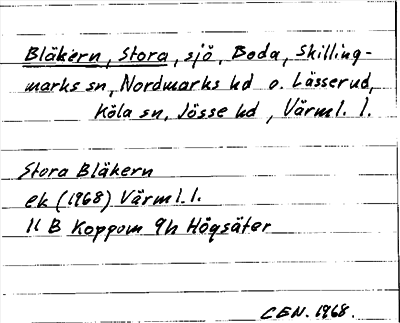 Bläkern, Stora, sjö, Boda, Skilling-
marks sn, Nordmarks hd o. Lässerud,
Köla sn, Jösse hd, Värml. l.
Stora Bläkern
ek (1968) Värml. l.
11 B Koppom 9h Högsäter
CEN. 1968.